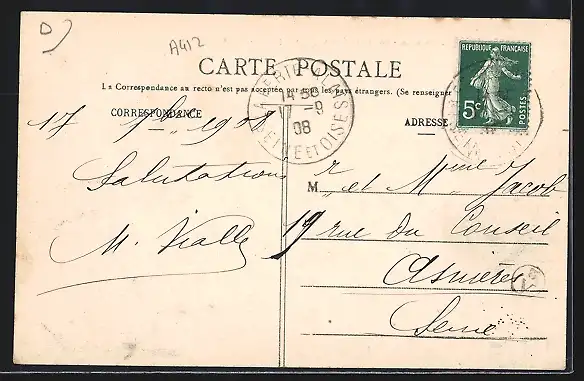 D
A412
CARTE POSTALE
La Correspondance au recto n'est pas acceptée par tous les pays étrangers. (Se renseigner
CORRESPONDANCE
ADRESSE
REPUBLIQUE FRANÇAISE
5c
POSTES
14 30
17 - 9
08
SEINE ET OISE
17 7bre 1908
Salutations
M. Vialle
M r et Mme Jacob
19 rue du Conseil
Asnières
Seine